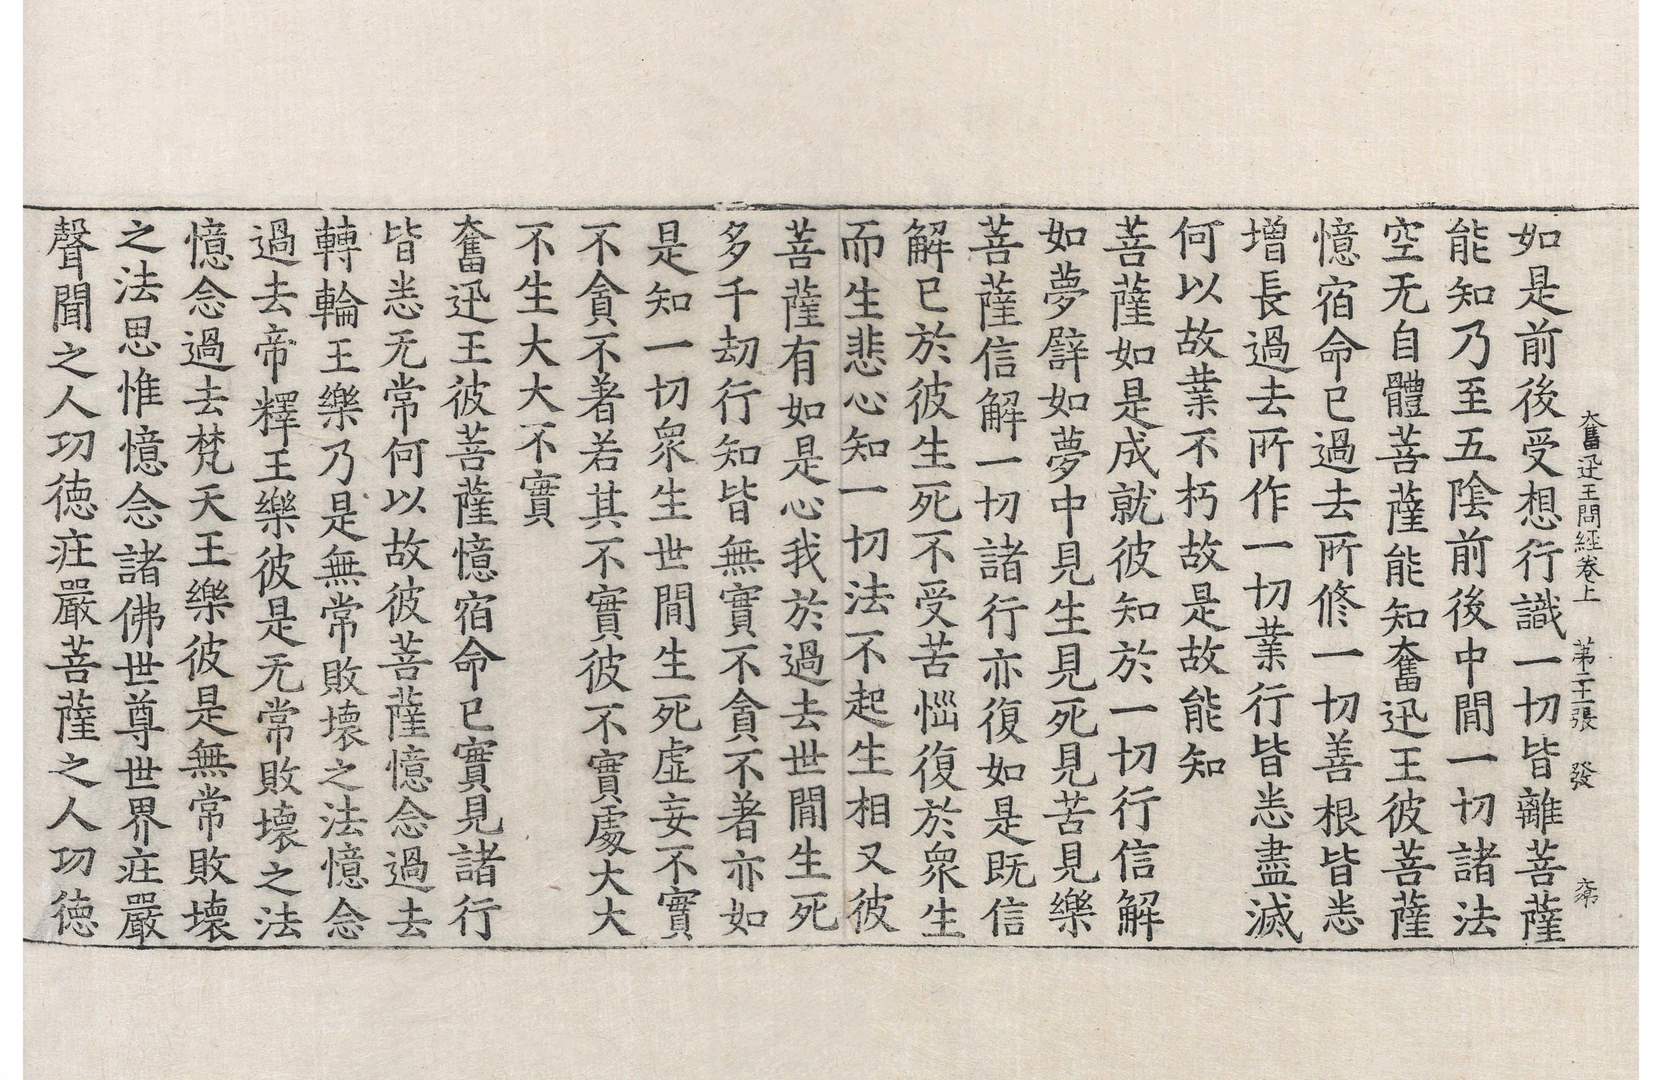 奮迅王問經卷上 第二十三張 發
如是前後受想行識一切皆離菩薩
能知乃至五陰前後中間一切諸法
空无自體菩薩能知奮迅王彼菩薩
憶宿命已過去所修一切善根皆悉
增長過去所作一切業行皆悉盡滅
何以故業不朽故是故能知
菩薩如是成就彼知於一切行信解
如夢譬如夢中見生見死見苦見樂
菩薩信解一切諸行亦復如是既信
解已於彼生死不受苦惱復於衆生
而生悲心知一切法不起生相又彼
菩薩有如是心我於過去世間生死
多千劫行知皆無實不貪不著亦如
是知一切衆生世間生死虛妄不實
不貪不著若其不實彼不實處大大
不生大大不實
奮迅王彼菩薩憶宿命已實見諸行
皆悉无常何以故彼菩薩憶念過去
轉輪王樂乃是無常敗壞之法憶念
過去帝釋王樂彼是无常敗壞之法
憶念過去梵天王樂彼是無常敗壞
之法思惟憶念諸佛世尊世界疘嚴
聲聞之人功德疘嚴菩薩之人功德